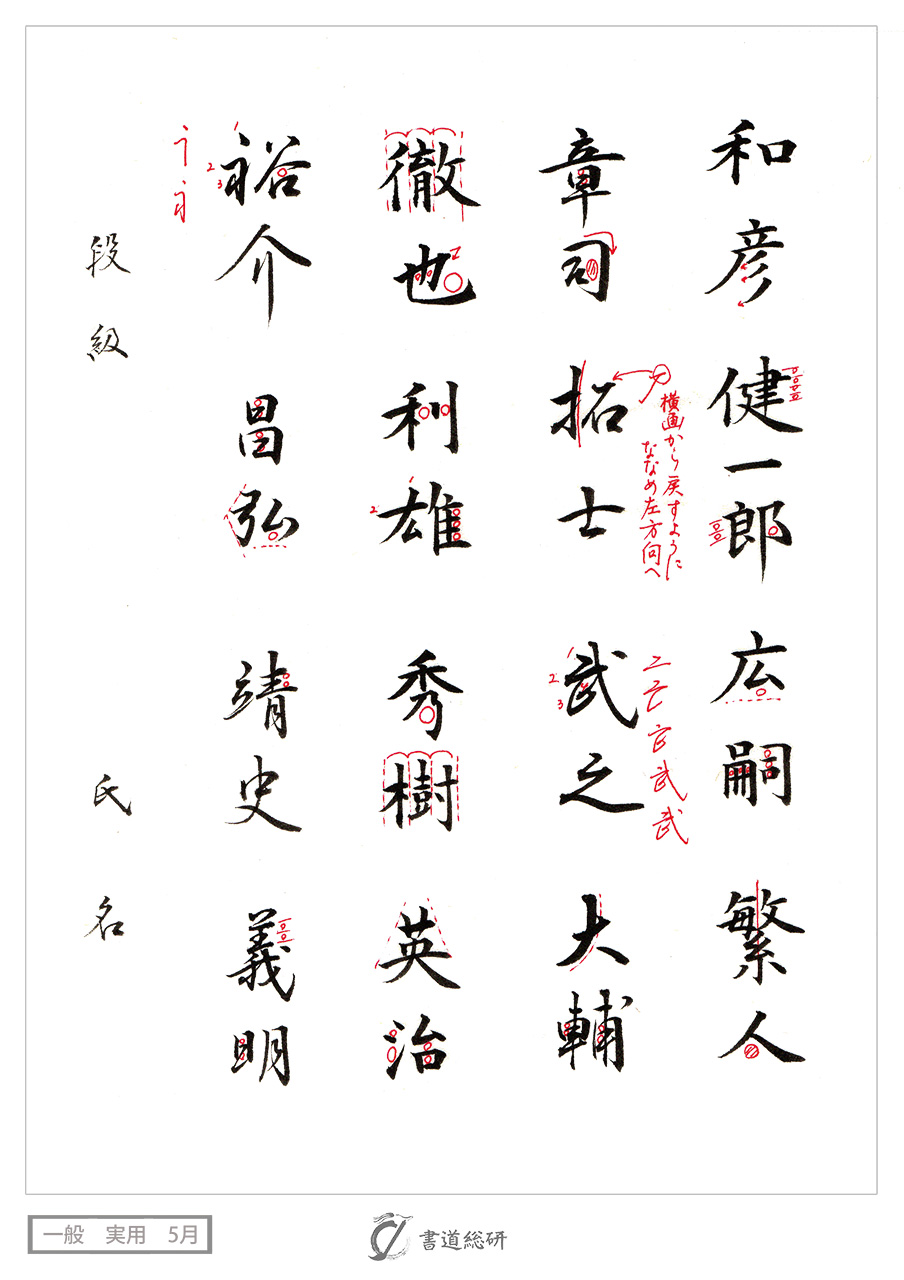 和彦 健一郎 広嗣 繁人
章司 拓士 武之 大輔
横画から戻すように
ななめ左方向へ
1
2
3
二
武
武
徹也 利雄 秀樹 英治
1
2
裕介 昌弘 靖史 義明
1
2
3
段級 氏名
一般 実用 5月
書道総研